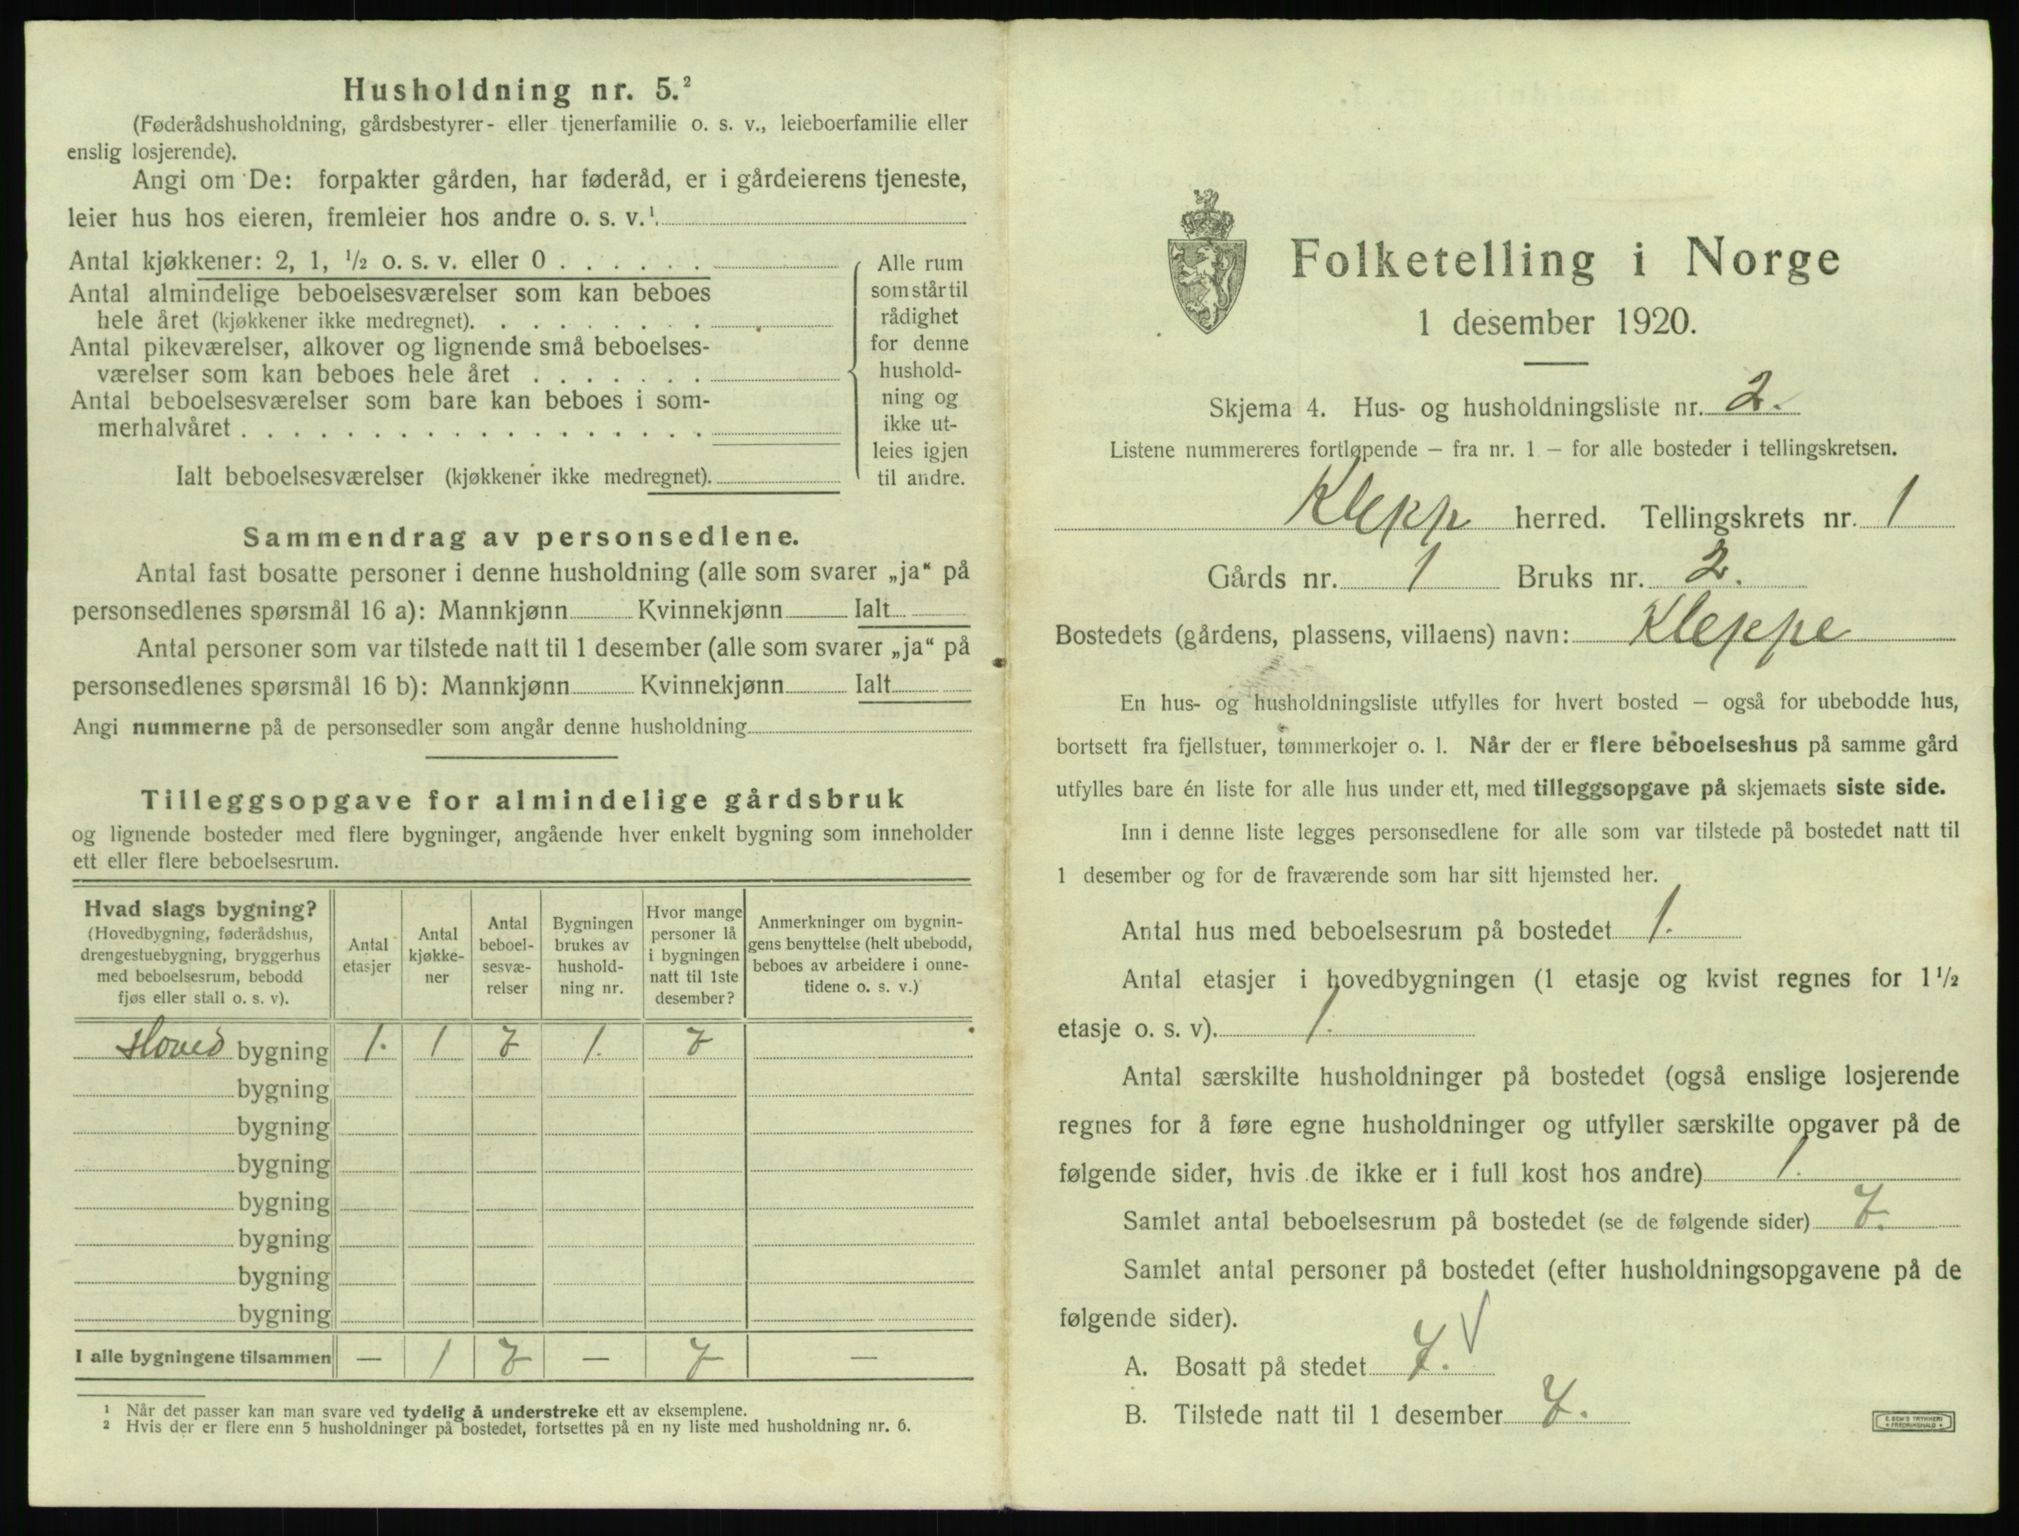 Husholdning nr. 5.²
(Føderådshusholdning, gårdsbestyrer- eller tjenerfamilie o. s. v., leieboerfamilie eller
enslig losjerende).
Angi om De: forpakter gården, har føderåd, er i gårdeierens tjeneste,
leier hus hos eieren, fremleier hos andre o. s. v.¹
Antal kjøkkener: 2, 1, ½ o. s. v. eller 0
Antal almindelige beboelsesværelser som kan beboes
hele året (kjøkkener ikke medregnet).
Antal pikeværelser, alkover og lignende små beboelses-
værelser som kan beboes hele året
Antal beboelsesværelser som bare kan beboes i som-
merhalvåret
Ialt beboelsesværelser (kjøkkener ikke medregnet).
Alle rum
som står til
rådighet
for denne
hushold-
ning og
ikke ut-
leies igjen
til andre.
Sammendrag av personsedlene.
Antal fast bosatte personer i denne husholdning (alle som svarer „ja“ på
personsedlenes spørsmål 16 a): Mannkjønn Kvinnekjønn Ialt
Antal personer som var tilstede natt til 1 desember (alle som svarer „ja“ på
personsedlenes spørsmål 16 b): Mannkjønn Kvinnekjønn Ialt
Angi nummerne på de personsedler som angår denne husholdning
Tilleggsopgave for almindelige gårdsbruk
og lignende bosteder med flere bygninger, angående hver enkelt bygning som inneholder
ett eller flere beboelsesrum.
Hvad slags bygning?
(Hovedbygning, føderådshus,
drengestuebygning, bryggerhus
med beboelsesrum, bebodd
fjøs eller stall o. s. v).
Antal
etasjer
Antal
kjøkke-
ner
Antal
beboel-
sesvæ-
relser
Bygningen
brukes av
hushold-
ning nr.
Hvor mange
personer lå
i bygningen
natt til 1ste
desember?
Anmerkninger om bygnin-
gens benyttelse (helt ubebodd,
beboes av arbeidere i onne-
tidene o. s. v.)
Hoved bygning 1. 1 7 1. 7
bygning
bygning
bygning
bygning
bygning
bygning
bygning
I alle bygningene tilsammen — 1 7 — 7 —
¹ Når det passer kan man svare ved tydelig å understreke ett av eksemplene.
² Hvis der er flere enn 5 husholdninger på bostedet, fortsettes på en ny liste med husholdning nr. 6.
Folketelling i Norge
1 desember 1920.
Skjema 4. Hus- og husholdningsliste nr. 2.
Listene nummereres fortløpende — fra nr. 1 — for alle bosteder i tellingskretsen.
Klepp herred. Tellingskrets nr. 1
Gårds nr. 1 Bruks nr. 2.
Bostedets (gårdens, plassens, villaens) navn: Kleppe
En hus- og husholdningsliste utfylles for hvert bosted — også for ubebodde hus,
bortsett fra fjellstuer, tømmerkojer o. l. Når der er flere beboelseshus på samme gård
utfylles bare én liste for alle hus under ett, med tilleggsopgave på skjemaets siste side.
Inn i denne liste legges personsedlene for alle som var tilstede på bostedet natt til
1 desember og for de fraværende som har sitt hjemsted her.
Antal hus med beboelsesrum på bostedet 1.
Antal etasjer i hovedbygningen (1 etasje og kvist regnes for 1½
etasje o. s. v). 1.
Antal særskilte husholdninger på bostedet (også enslige losjerende
regnes for å føre egne husholdninger og utfyller særskilte opgaver på de
følgende sider, hvis de ikke er i full kost hos andre) 1.
Samlet antal beboelsesrum på bostedet (se de følgende sider) 7.
Samlet antal personer på bostedet (efter husholdningsopgavene på de
følgende sider).
A. Bosatt på stedet 7. √
B. Tilstede natt til 1 desember 7.
E. SEM'S TRYKKERI
FREDRIKSHALD